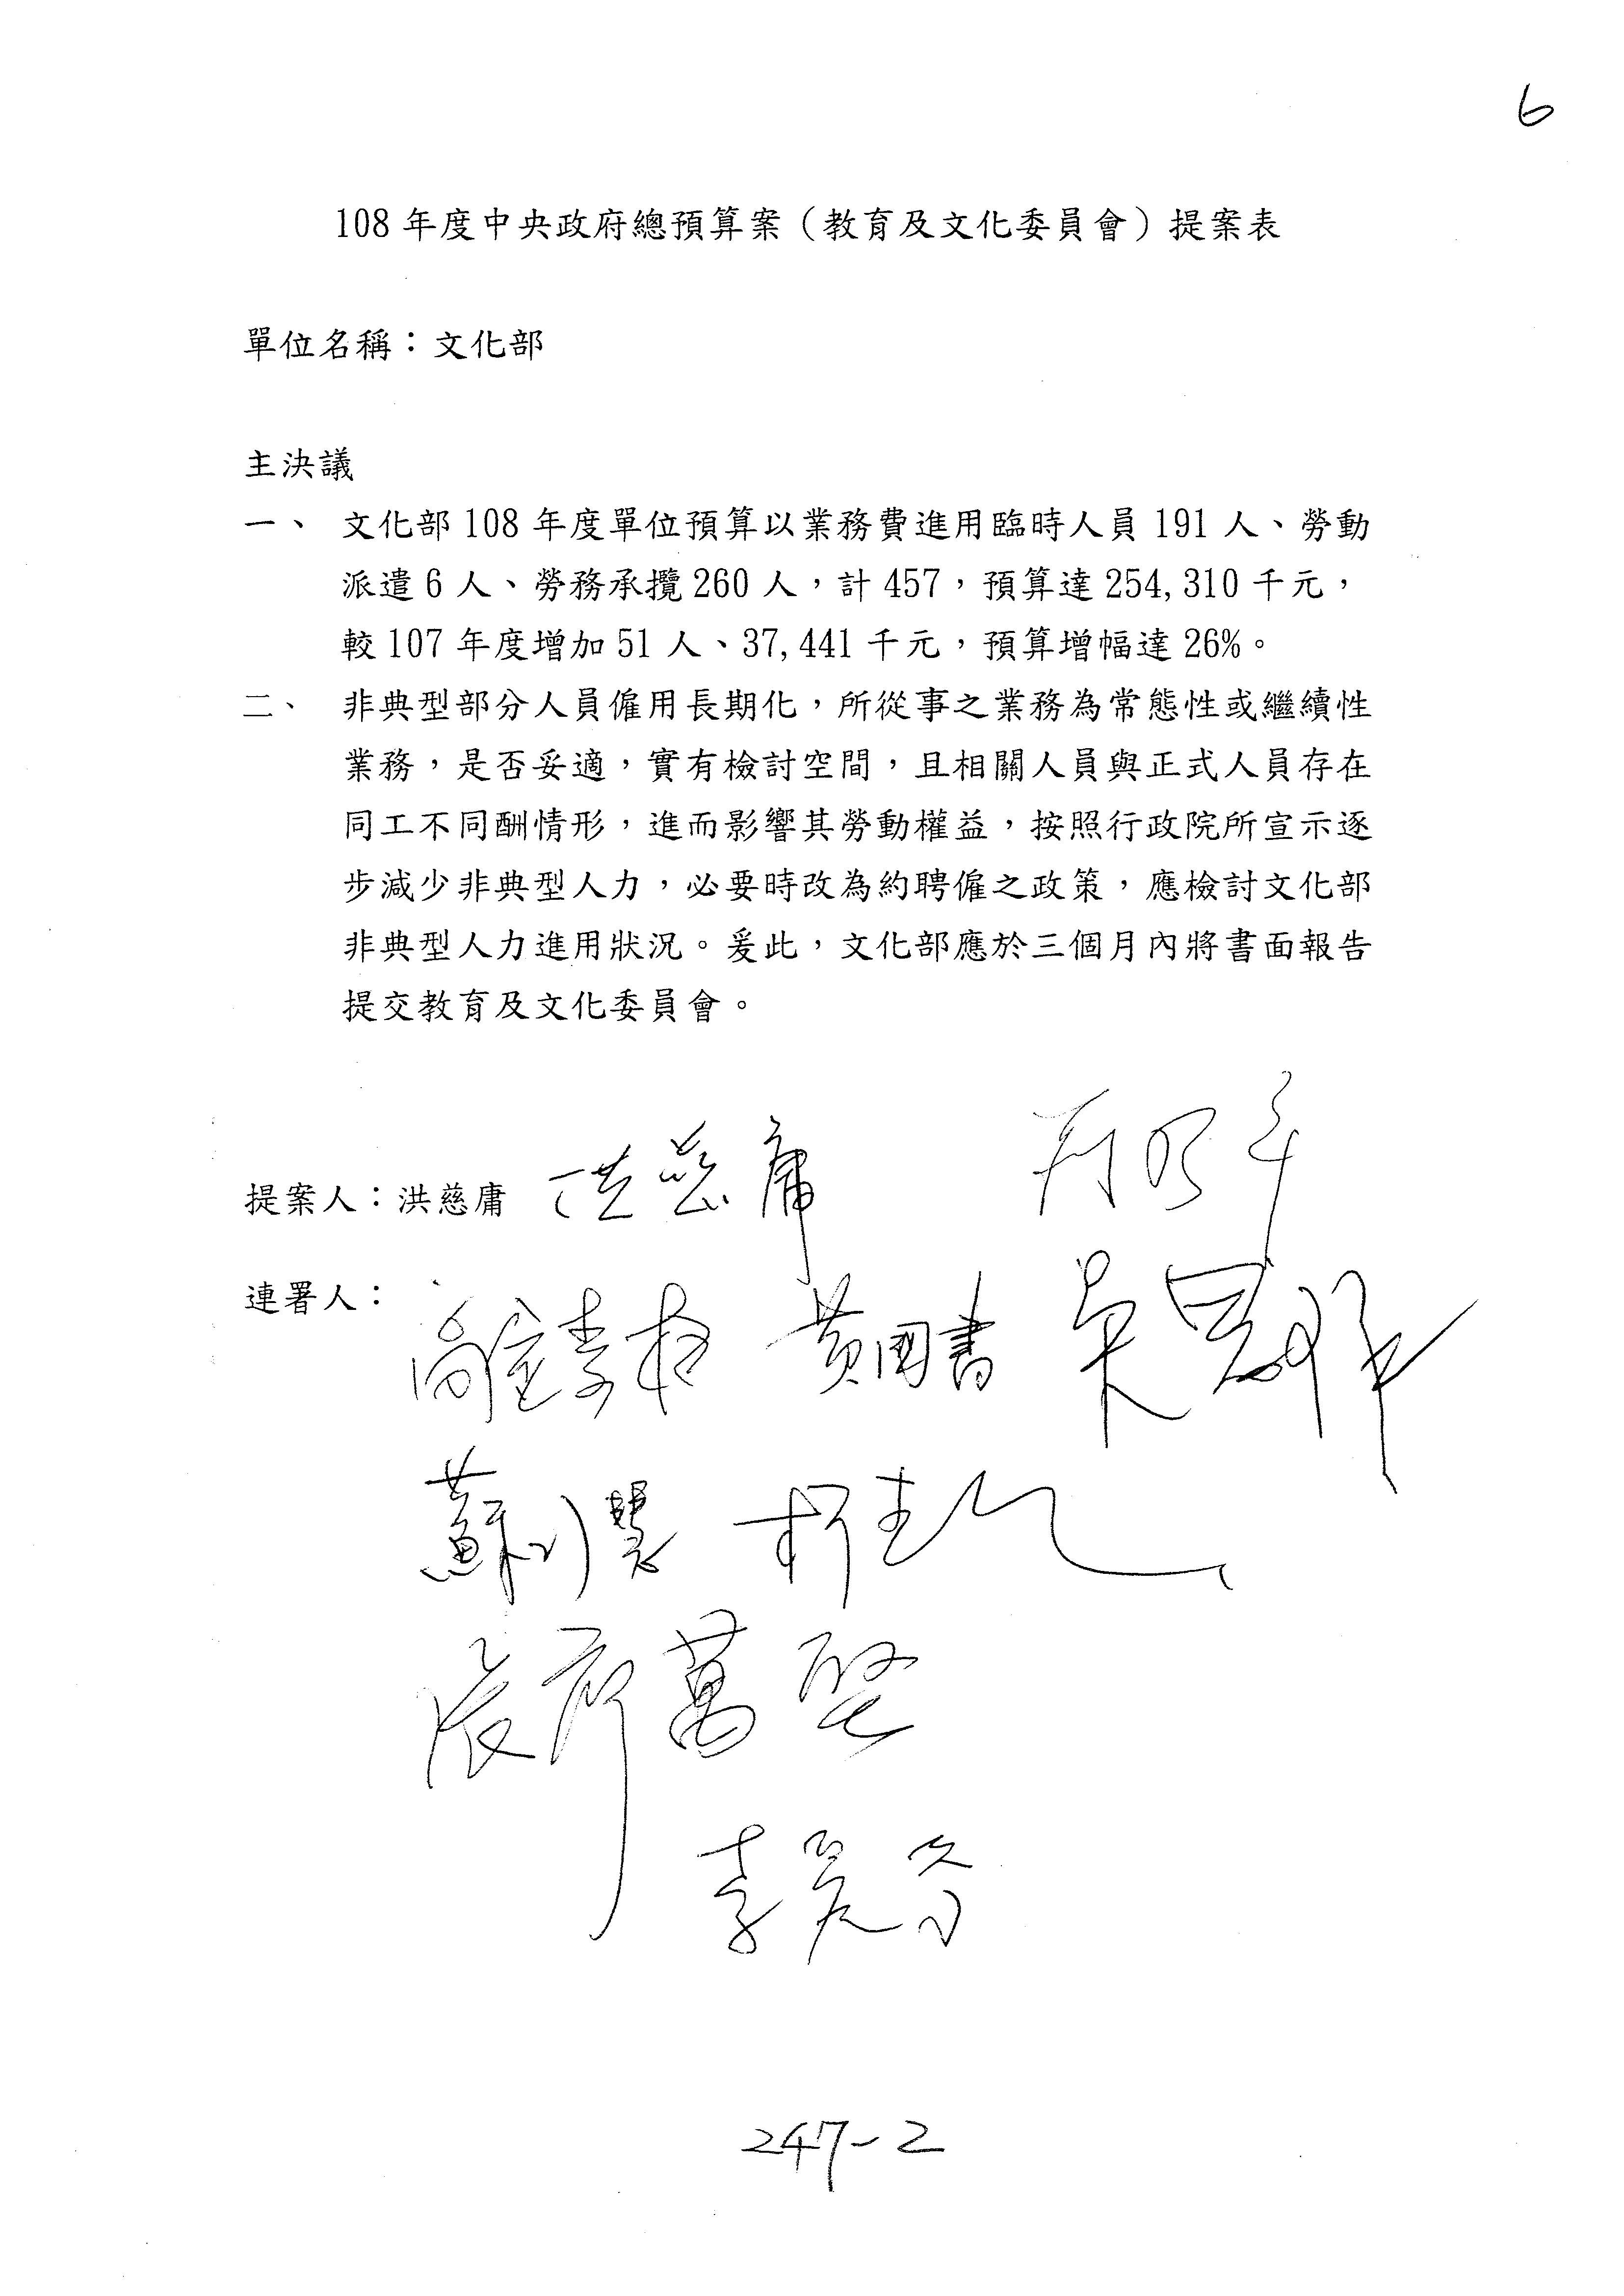 6
108 年度中央政府總預算案（教育及文化委員會）提案表
單位名稱：文化部
主決議
一、 文化部 108 年度單位預算以業務費進用臨時人員 191 人、勞動
派遣 6 人、勞務承攬 260 人，計 457，預算達 254,310 千元，
較 107 年度增加 51 人、37,441 千元，預算增幅達 26%。
二、 非典型部分人員僱用長期化，所從事之業務為常態性或繼續性
業務，是否妥適，實有檢討空間，且相關人員與正式人員存在
同工不同酬情形，進而影響其勞動權益，按照行政院所宣示逐
步減少非典型人力，必要時改為約聘僱之政策，應檢討文化部
非典型人力進用狀況。爰此，文化部應於三個月內將書面報告
提交教育及文化委員會。
提案人：洪慈庸 洪慈庸
連署人：
黃國書 吳思瑤
蘇巧慧
張廖萬堅
李昆
247-2